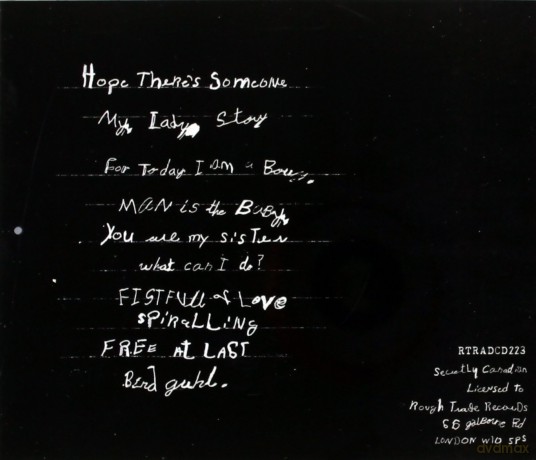 Hope There's Someone
My Lady Story
For Today I am a Boy
MAN is the BaBy
You are my sisTer
what can I do?
FISTFUll of Love
SPiRaLLiNg
FREE AT LAST
Bird guhl.
RTRADCD223
Secretly Canadian
Licensed To
Rough Trade Records
66 golborne Rd
LONDON W10 5PS
dvdmax